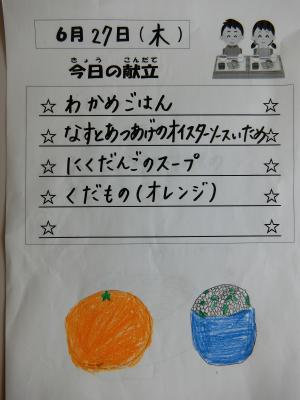 6月27日(木)
きょう こんだて
今日の献立
☆ わかめごはん ☆
☆ なすとあつあげのオイスターソースいため ☆
☆ にくだんごのスープ ☆
☆ くだもの(オレンジ) ☆
☆ ☆